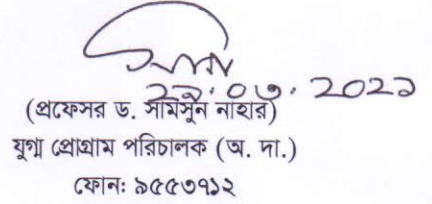 ২৯.০৩.২০২১
(প্রফেসর ড. সামসুন নাহার)
যুগ্ম প্রোগ্রাম পরিচালক (অ. দা.)
ফোন: ৯৫৫৩৭১২